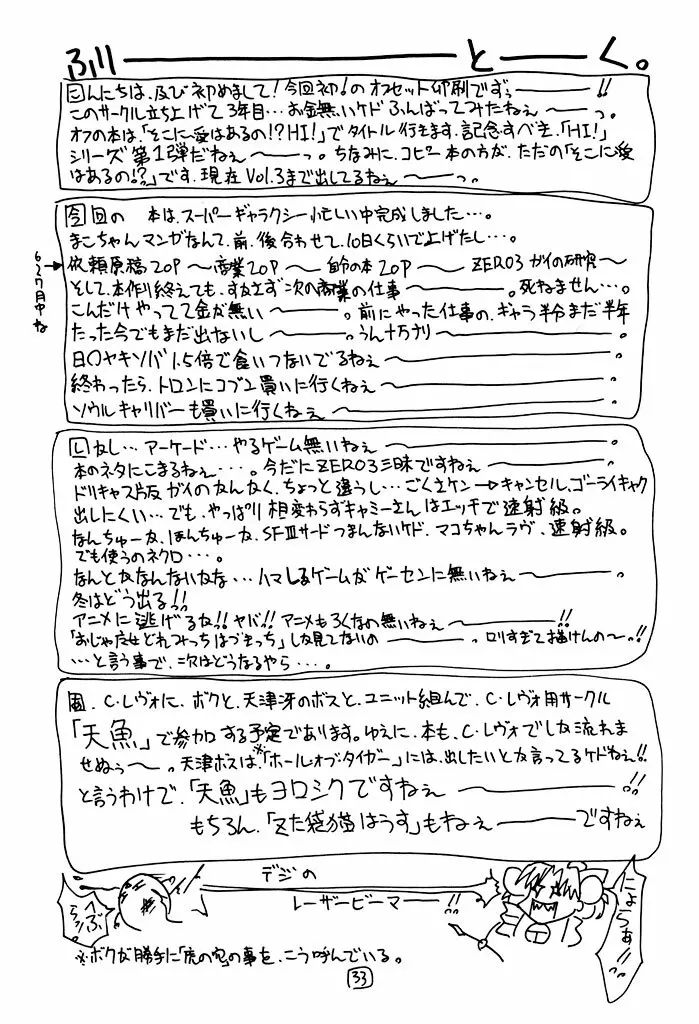 ふ川――とーく。
こんにちは、及び初めまして!今回初!のオフセット印刷ですぅ――!!
このサークル立ち上げて3年目…お金無いケドふんばってみたねぇ――っ。
オフの本は、「そこに愛はあるの!?HI!」でタイトル行きます、記念すべき、「HI!」
シリーズ第1弾だねぇ――っ。ちなみに、コピー本の方が、ただの「そこに愛
はあるの!?」です、現在Vol.3まで出してるねぇ――っ。
今回の 本は、スーパーギャラクシー忙しい中完成しました…。
まこちゃんマンガなんて、前、後合わせて、10日くらいで上げたし…。
6~7月中ね
依頼原稿20P〜商業20P〜自分の本20P〜ZERO3ガイの研究〜
そして、本作り終えても、すぐさま次の商業の仕事――。死ねません…。
こんだけやってて金が無い――。前にやった仕事の、ギャラ半分まだ半年
たった今でもまだ出ないし――。うん十万がり
日〇ヤキソバ1.5倍で食いつないでるねぇ――。
終わったら、トロンにコブン買いに行くねぇ――。
ソウルキャリバーも買いに行くねぇ――。
しなし…アーケード…やるゲーム無いねぇ――。
本のネタにこまるねぇ…。今だにZERO3三昧ですねぇ――。
ドリキャス版ガイのなんなく、ちょっと違うし…ごくさケン→キャンセル、ゴーライキャク
出しにくい…でも、やっぱり相変わらずキャミーさんはエッチで速射級。
なんちゅーか、ほんちゅーか、SFⅢサードつまんないケド、マコちゃんラヴ、速射級。
でも使うのネクロ…。
なんとかなんないかな…ハマしるゲームがゲーセンに無いねぇ――。
冬はどう出る!!
アニメに逃げるな!!ヤバ!!アニメもろくなの無いねぇ――!!
「おじゃだせどれみっちはづきっち」しか見てないの――。ロリすぎて描けんの〜。!!
…と言う事で、次はどうなるやら…。
C・レヴォに、ボクと、天津冴のボスと、ユニット組んで、C・レヴォ用サークル
「天魚」で参加する予定であります。ゆえに、本も、C・レヴォでしか流れま
せぬぅ――。天津ボスは、「※ホールオブタイガー」には、出したいとか言ってるケドねぇ!!
と言うわけで、「天魚」もヨロシクですねぇ――!!
もちろん、「又た袋猫はうす」もねぇ――ですねぇ
デジの
レーザービーマ――!!
へぶらっ!!
にょらぁ!!
※ボクが勝手に「虎の穴」の事を、こう呼んでいる。
33